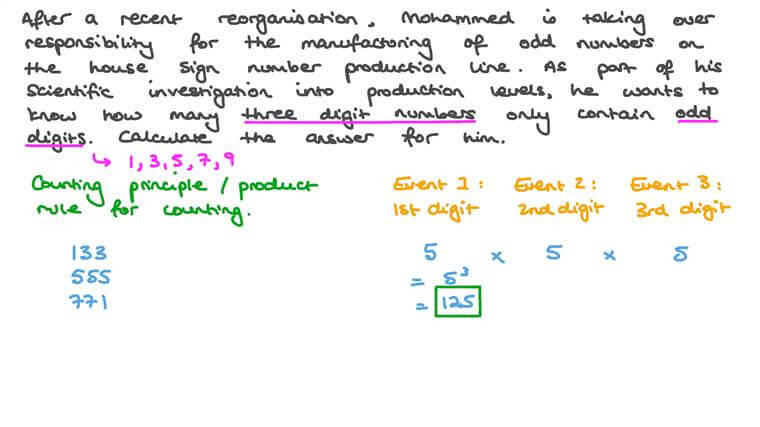 After a recent reorganisation, Mohammed is taking over
responsibility for the manufactoring of odd numbers on
the house sign number production line. As part of his
scientific investigation into production levels, he wants to
know how many three digit numbers only contain odd
digits. Calculate the answer for him.
↳ 1, 3, 5, 7, 9
Counting principle / product
rule for counting.
Event 1: Event 2: Event 3:
1st digit 2nd digit 3rd digit
133
555
771
5 × 5 × 5
= 5³
= 125